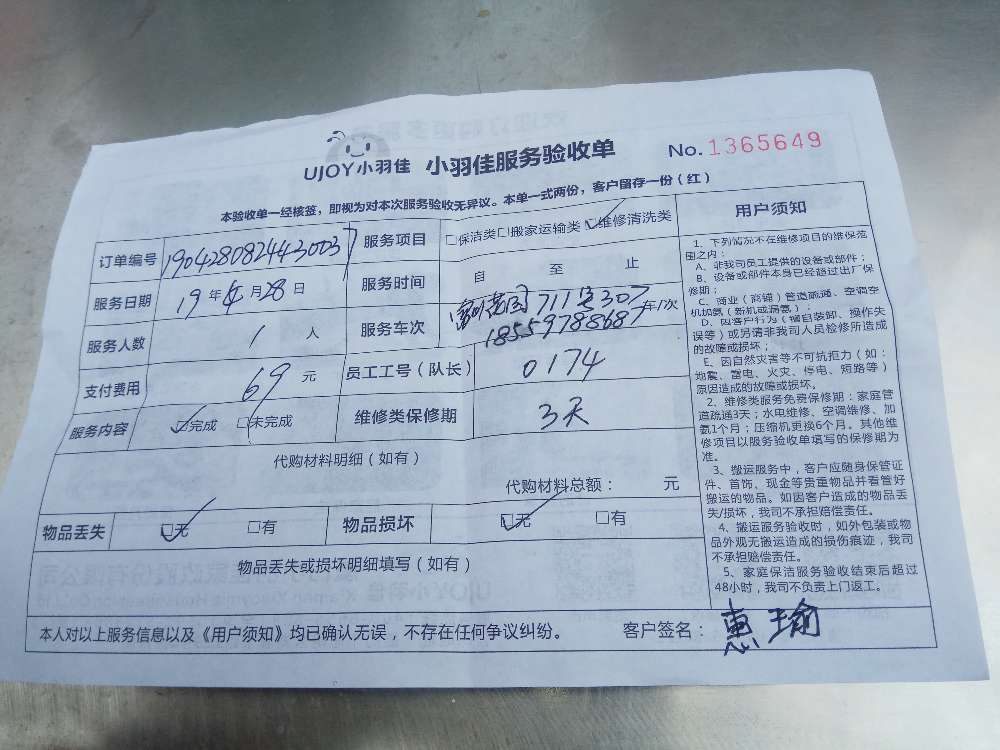 UJOY小羽佳 小羽佳服务验收单 No. 1365649
本验收单一经核签，即视为对本次服务验收无异议。本单一式两份，客户留存一份（红）
订单编号 1904280824430037 服务项目 □保洁类□搬家运输类☑维修清洗类
服务日期 19年4月28日 服务时间 自 至 止
服务人数 1 人 服务车次 花园711号307 18559788687 车/次
支付费用 69 元 员工工号（队长） 0174
服务内容 ☑完成 □未完成 维修类保修期 3天
代购材料明细（如有）
代购材料总额： 元
物品丢失 ☑无 □有 物品损坏 ☑无 □有
物品丢失或损坏明细填写（如有）
本人对以上服务信息以及《用户须知》均已确认无误，不存在任何争议纠纷。 客户签名：惠瑜
用户须知
1、下列情况不在维修项目的维保范
围之内：
A、非我司员工提供的设备或部件；
B、设备或部件本身已经超过出厂保
修期；
C、商业（商铺）管道疏通、空调空
机加氨（新机或漏氨）；
D、因客户行为（擅自装卸、操作失
误等）或另请非我司人员检修所造成
的故障或损坏；
E、因自然灾害等不可抗拒力（如：
地震、雷电、火灾、停电、短路等）
原因造成的故障或损坏。
2、维修类服务免费保修期：家庭管
道疏通3天；水电维修、空调维修、加
氨1个月；压缩机更换6个月。其他维
修项目以服务验收单填写的保修期为
准。
3、搬运服务中，客户应随身保管证
件、首饰、现金等贵重物品并看管好
搬运的物品。如因客户造成的物品丢
失/损坏，我司不承担赔偿责任。
4、搬运服务验收时，如外包装或物
品外观无搬运造成的损伤痕迹，我司
不承担赔偿责任。
5、家庭保洁服务验收结束后超过
48小时，我司不负责上门返工。